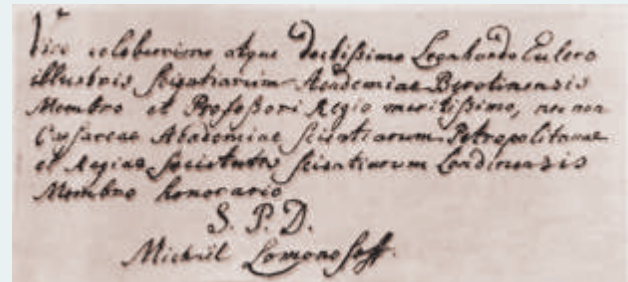 Viro celeberrimo atque doctißimo Leonhardo Eulero
illustris Scientiarum Academiae Berolinensis
Membro et Profeßori Regio meritißimo, nec non
Caesareae Academiae Scientiarum Petropolitanae
et Regiae Societatis Scientiarum Londinensis
Membro honorario
S. P. D.
Michaël Lomonosoff.